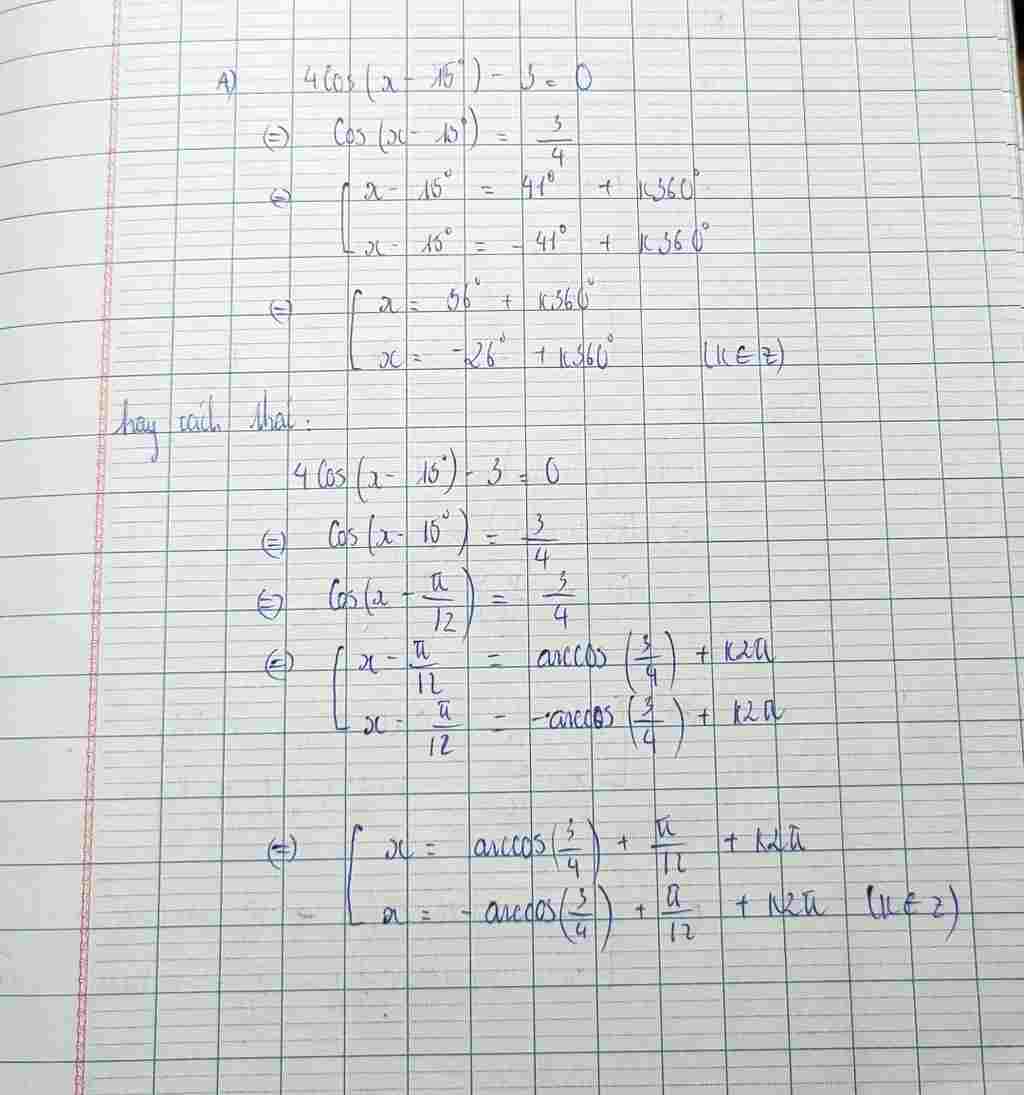 A) 4cos(x - 15°) - 3 = 0
(=) cos(x - 15°) = 3/4
(=) [ x - 15° = 41° + k360°
x - 15° = - 41° + k360°
(=) [ x = 56° + k360°
x = -26° + k360° (k ∈ Z)
hay cách khác:
4cos(x - 15°) - 3 = 0
(=) cos(x - 15°) = 3/4
(=) cos(x - π/12) = 3/4
(=) [ x - π/12 = arccos(3/4) + k2π
x - π/12 = - arccos(3/4) + k2π
(=) [ x = arccos(3/4) + π/12 + k2π
x = - arccos(3/4) + π/12 + k2π (k ∈ Z)